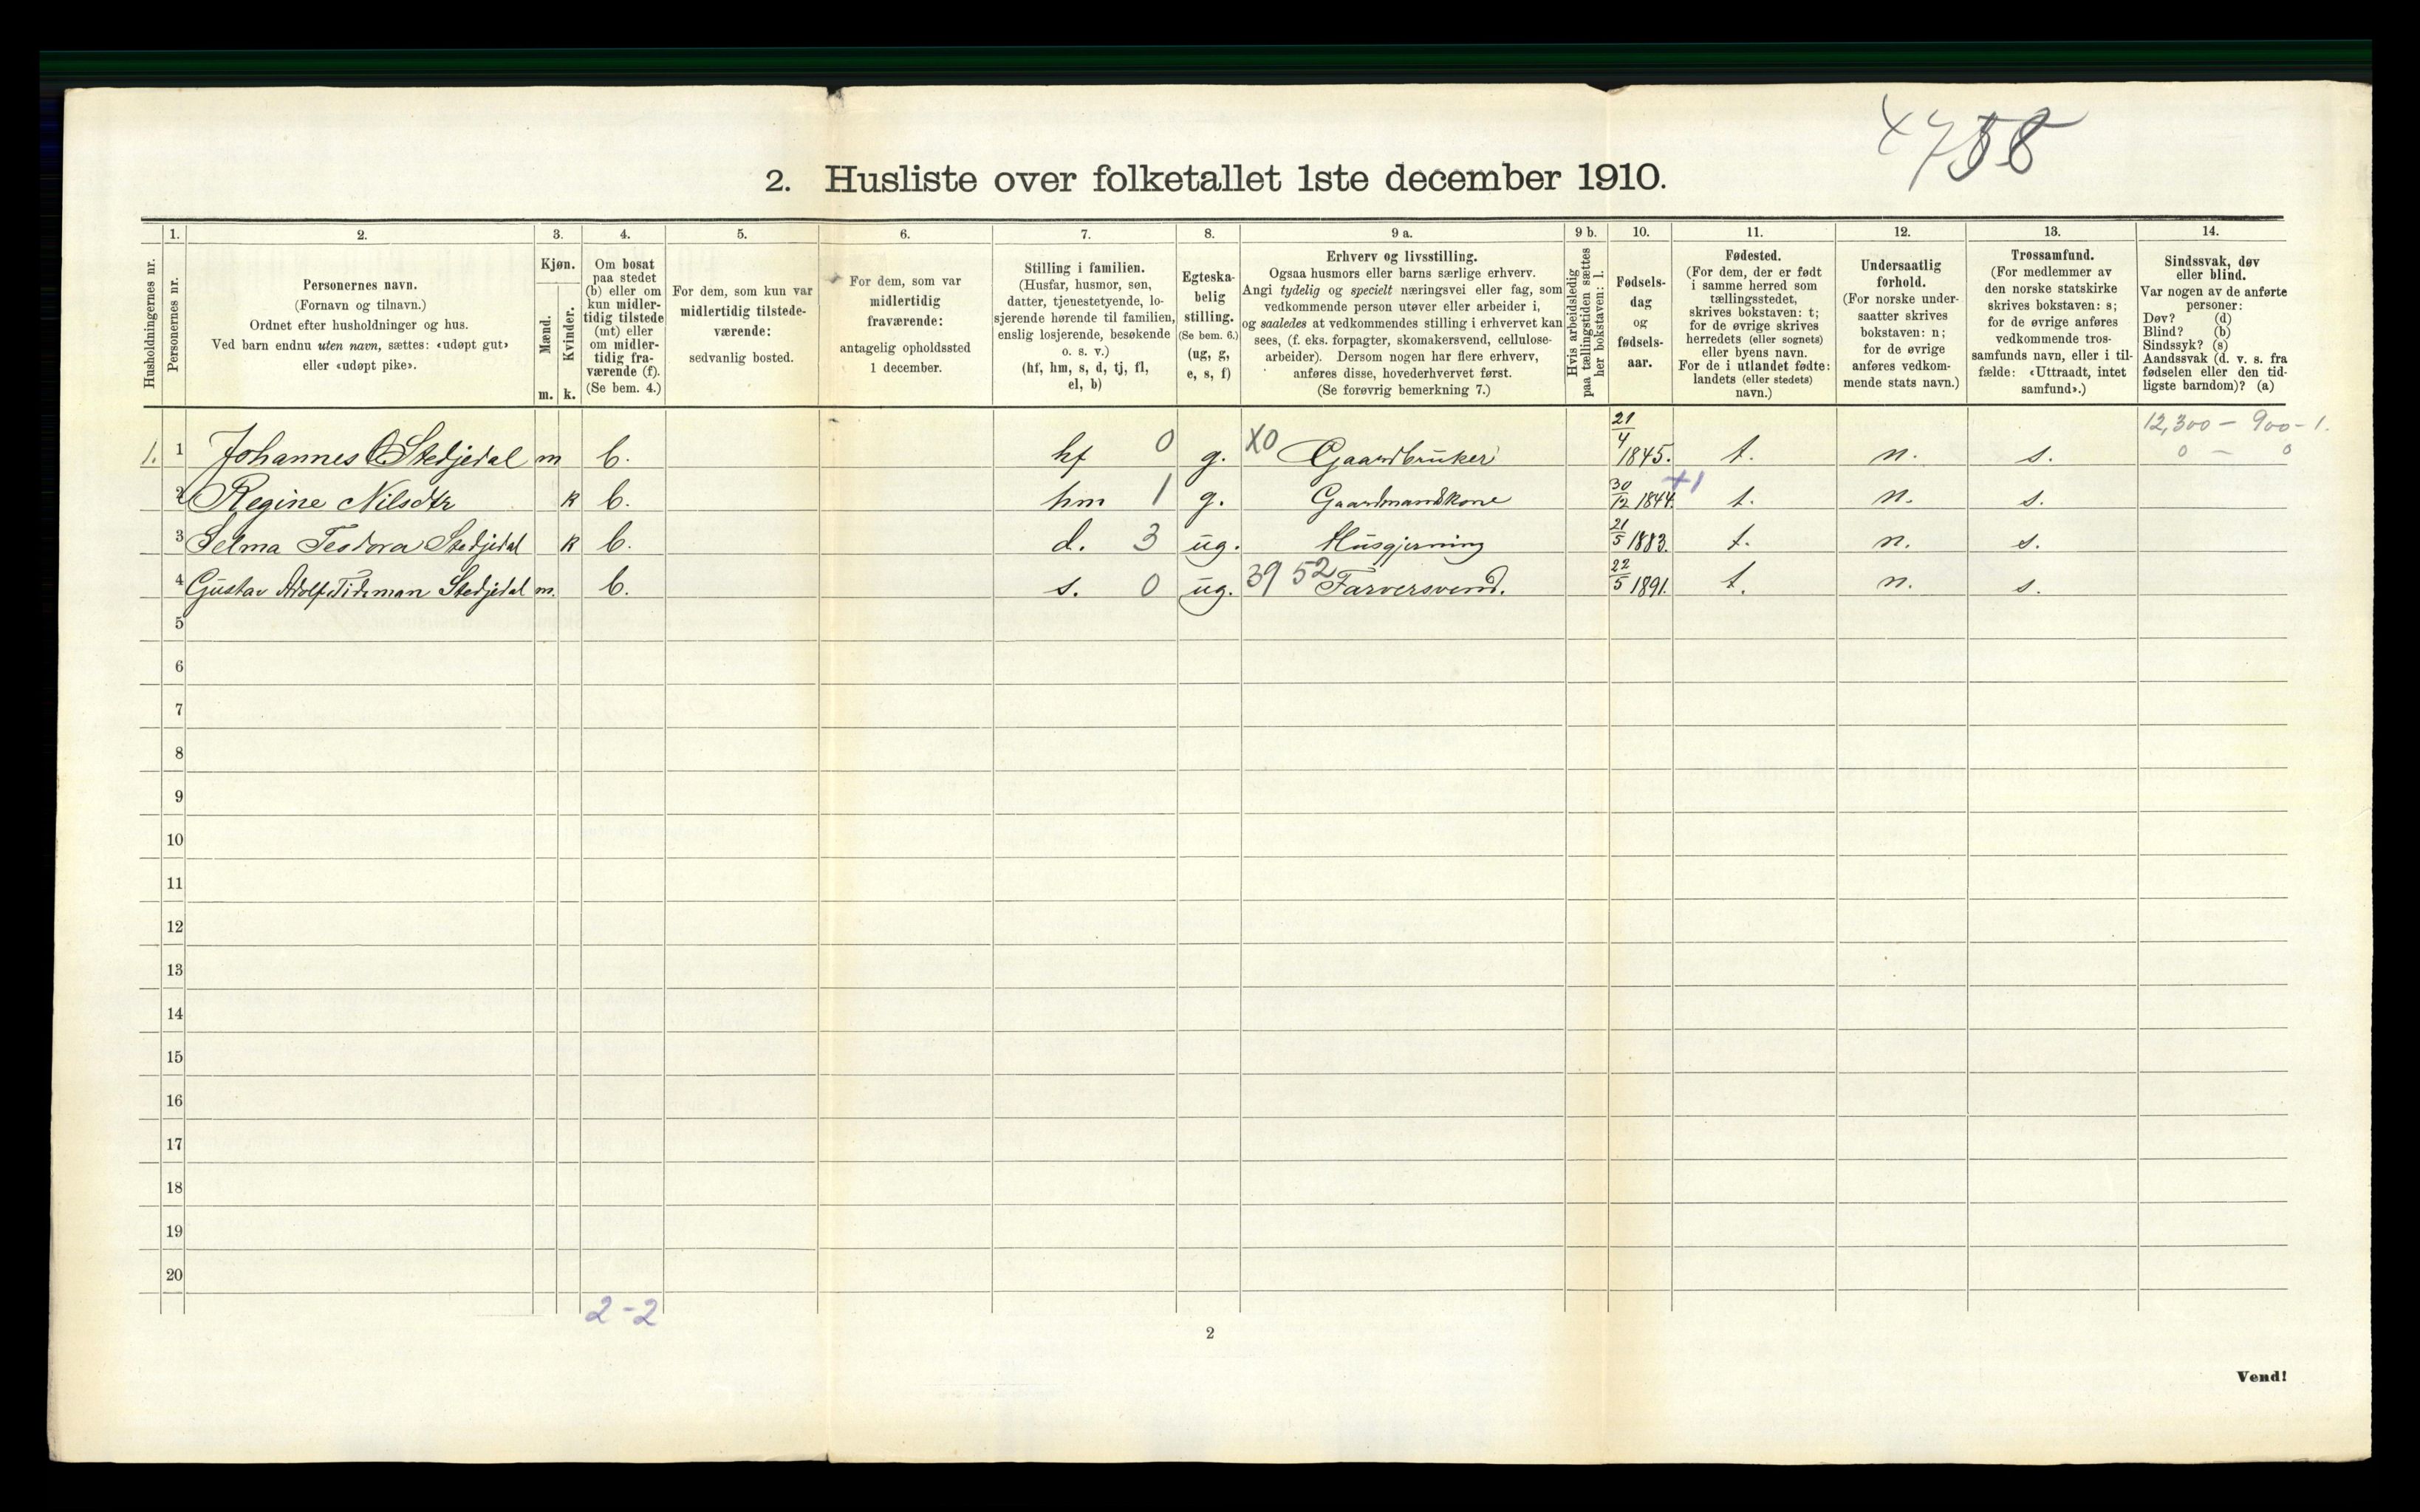 4758
2. Husliste over folketallet 1ste december 1910.
Husholdningernes nr.
1.
Personernes nr.
2.
Personernes navn.
(Fornavn og tilnavn.)
Ordnet efter husholdninger og hus.
Ved barn endnu uten navn, sættes: «udøpt gut»
eller «udøpt pike».
3.
Kjøn.
Mænd.
Kvinder.
m. k.
4.
Om bosat
paa stedet
(b) eller om
kun midler-
tidig tilstede
(mt) eller
om midler-
tidig fra-
værende (f).
(Se bem. 4.)
5.
For dem, som kun var
midlertidig tilstede-
værende:
sedvanlig bosted.
6.
For dem, som var
midlertidig
fraværende:
antagelig opholdssted
1 december.
7.
Stilling i familien.
(Husfar, husmor, søn,
datter, tjenestetyende, lo-
sjerende hørende til familien,
enslig losjerende, besøkende
o. s. v.)
(hf, hm, s, d, tj, fl,
el, b)
8.
Egteska-
belig
stilling.
(Se bem. 6.)
(ug, g,
e, s, f)
9 a.
Erhverv og livsstilling.
Ogsaa husmors eller barns særlige erhverv.
Angi tydelig og specielt næringsvei eller fag, som
vedkommende person utøver eller arbeider i,
og saaledes at vedkommendes stilling i erhvervet kan
sees, (f. eks. forpagter, skomakersvend, cellulose-
arbeider). Dersom nogen har flere erhverv,
anføres disse, hovederhvervet først.
(Se forøvrig bemerkning 7.)
9 b.
Hvis arbeidsledig
paa tællingstiden sættes
her bokstaven: l.
10.
Fødsels-
dag
og
fødsels-
aar.
11.
Fødested.
(For dem, der er født
i samme herred som
tællingsstedet,
skrives bokstaven: t;
for de øvrige skrives
herredets (eller sognets)
eller byens navn.
For de i utlandet fødte:
landets (eller stedets)
navn.)
12.
Undersaatlig
forhold.
(For norske under-
saatter skrives
bokstaven: n;
for de øvrige
anføres vedkom-
mende stats navn.)
13.
Trossamfund.
(For medlemmer av
den norske statskirke
skrives bokstaven: s;
for de øvrige anføres
vedkommende tros-
samfunds navn, eller i til-
fælde: «Uttraadt, intet
samfund».)
14.
Sindssvak, døv
eller blind.
Var nogen av de anførte
personer:
Døv? (d)
Blind? (b)
Sindssyk? (s)
Aandssvak (d. v. s. fra
fødselen eller den tid-
ligste barndom)? (a)
12,300 - 900 - 1.
0 - 0
1. 1 Johannes O Stedjedal m b. hf 0 g. X0 Gaardbruker 21/4 1845. t. n. s.
2 Regine Nilsdtr k b. hm 1 g. Gaardmandskone 30/12 1844. +1 t. n. s.
3 Selma Teodora Stedjedal k b. d. 3 ug. Husgjerning 21/5 1883. t. n. s.
4 Gustav Adolf Tideman Stedjedal m. b. s. 0 ug. 39 52 Farversvend. 22/5 1891. t. n. s.
5
6
7
8
9
10
11
12
13
14
15
16
17
18
19
20
2-2
2
Vend!